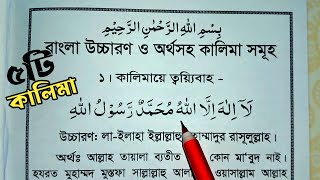 بِسْمِ اللهِ الرَّحْمٰنِ الرَّحِيْمِ
বাংলা উচ্চারণ ও অর্থসহ কালিমা সমূহ
৫টি
কালিমা
১। কালিমায়ে ত্বয়্যিবাহ -
لَآ اِلٰهَ اِلَّا اللهُ مُحَمَّدٌ رَّسُوْلُ اللهِ
উচ্চারণ: লা-ইলাহা ইল্লাল্লাহু রাসূলুল্লাহ।
অর্থঃ আল্লাহ তায়ালা ব্যতীত কোন মা'বুদ নাই।
হযরত মুহাম্মদ মুস্তফা সাল্লাল্লাহু ওয়াসাল্লাম আল্লাহ